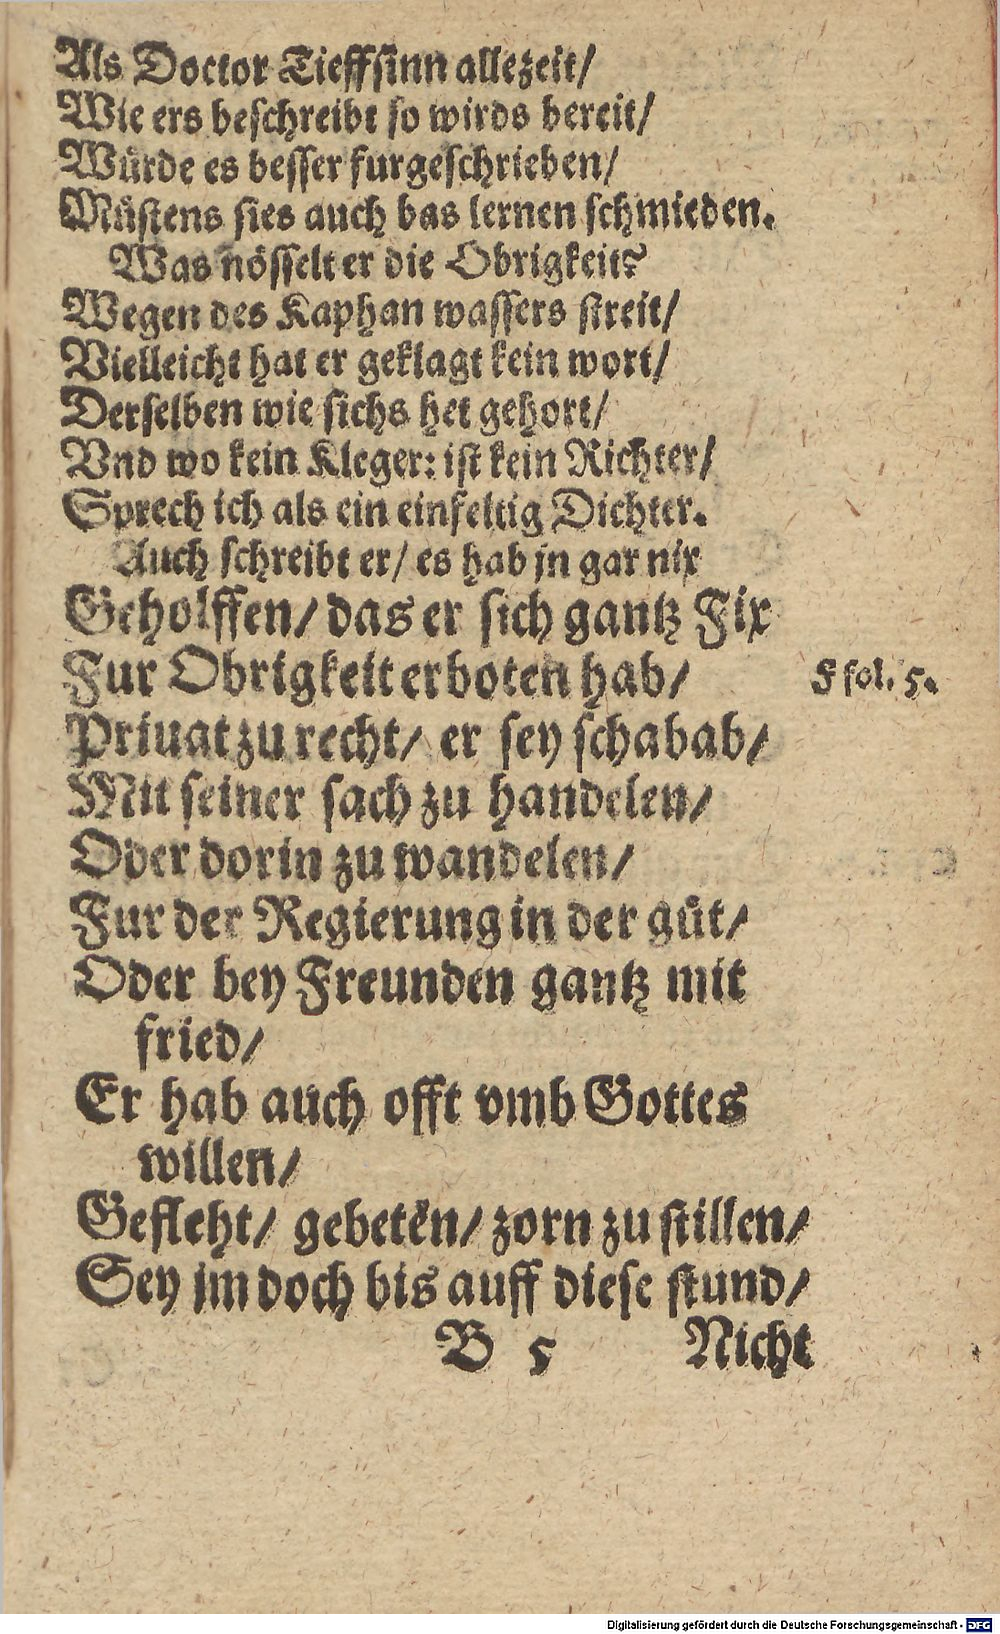 Als Doctor Tieffsinn allezeit/
Wie ers beschreibt so wirds bereit/
Wůrde es besser furgeschrieben/
Můstens sies auch bas lernen schmieden.
Was nösselt er die Obrigkeit?
Wegen des Kaphan wassers streit/
Vielleicht hat er geklagt kein wort/
Derselben wie sichs het gehort/
Vnd wo kein Kleger: ist kein Richter/
Sprech ich als ein einfeltig Dichter.
Auch schreibt er/ es hab jn gar nix
Geholffen/ das er sich gantz Fix
Fur Obrigkeit erboten hab/
F fol. 5.
Priuat zu recht/ er sey schabab/
Mit seiner sach zu handelen/
Oder dorin zu wandelen/
Fur der Regierung in der gůt/
Oder bey Freunden gantz mit
fried/
Er hab auch offt vmb Gottes
willen/
Gefleht/ gebetën/ zorn zu stillen/
Sey jm doch bis auff diese stund/
B 5 Nicht
Digitalisierung gefördert durch die Deutsche Forschungsgemeinschaft - DFG